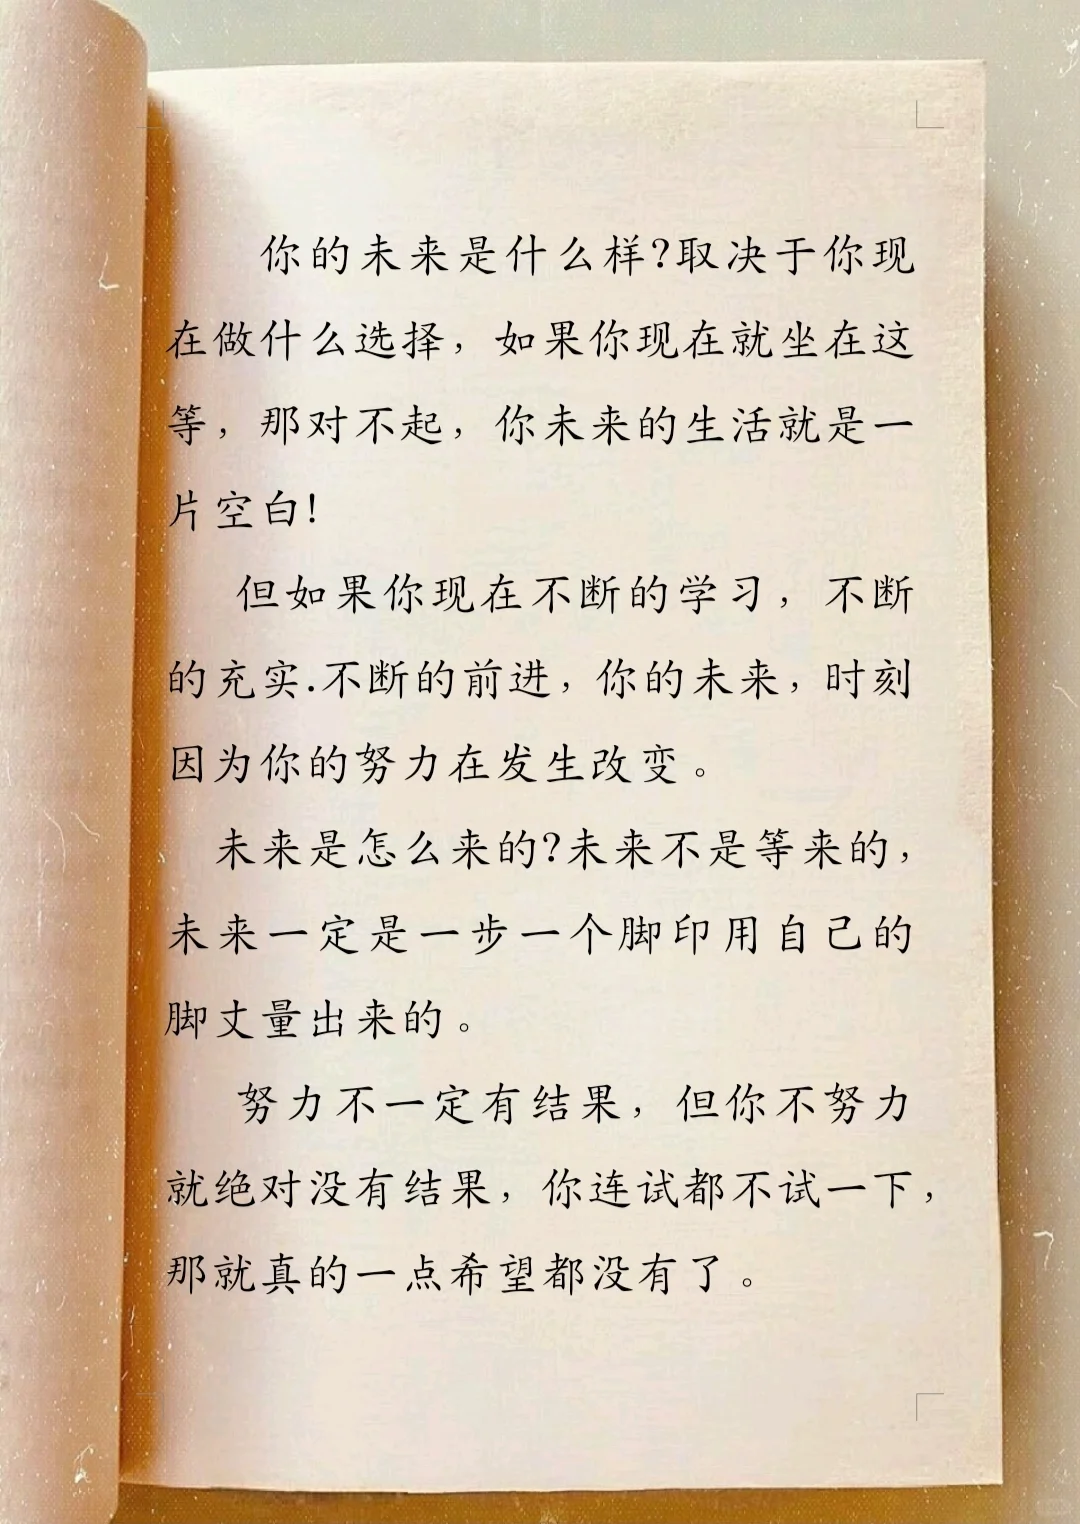 你的未来是什么样?取决于你现
在做什么选择，如果你现在就坐在这
等，那对不起，你未来的生活就是一
片空白!
但如果你现在不断的学习，不断
的充实.不断的前进，你的未来，时刻
因为你的努力在发生改变。
未来是怎么来的?未来不是等来的，
未来一定是一步一个脚印用自己的
脚丈量出来的。
努力不一定有结果，但你不努力
就绝对没有结果，你连试都不试一下，
那就真的一点希望都没有了。